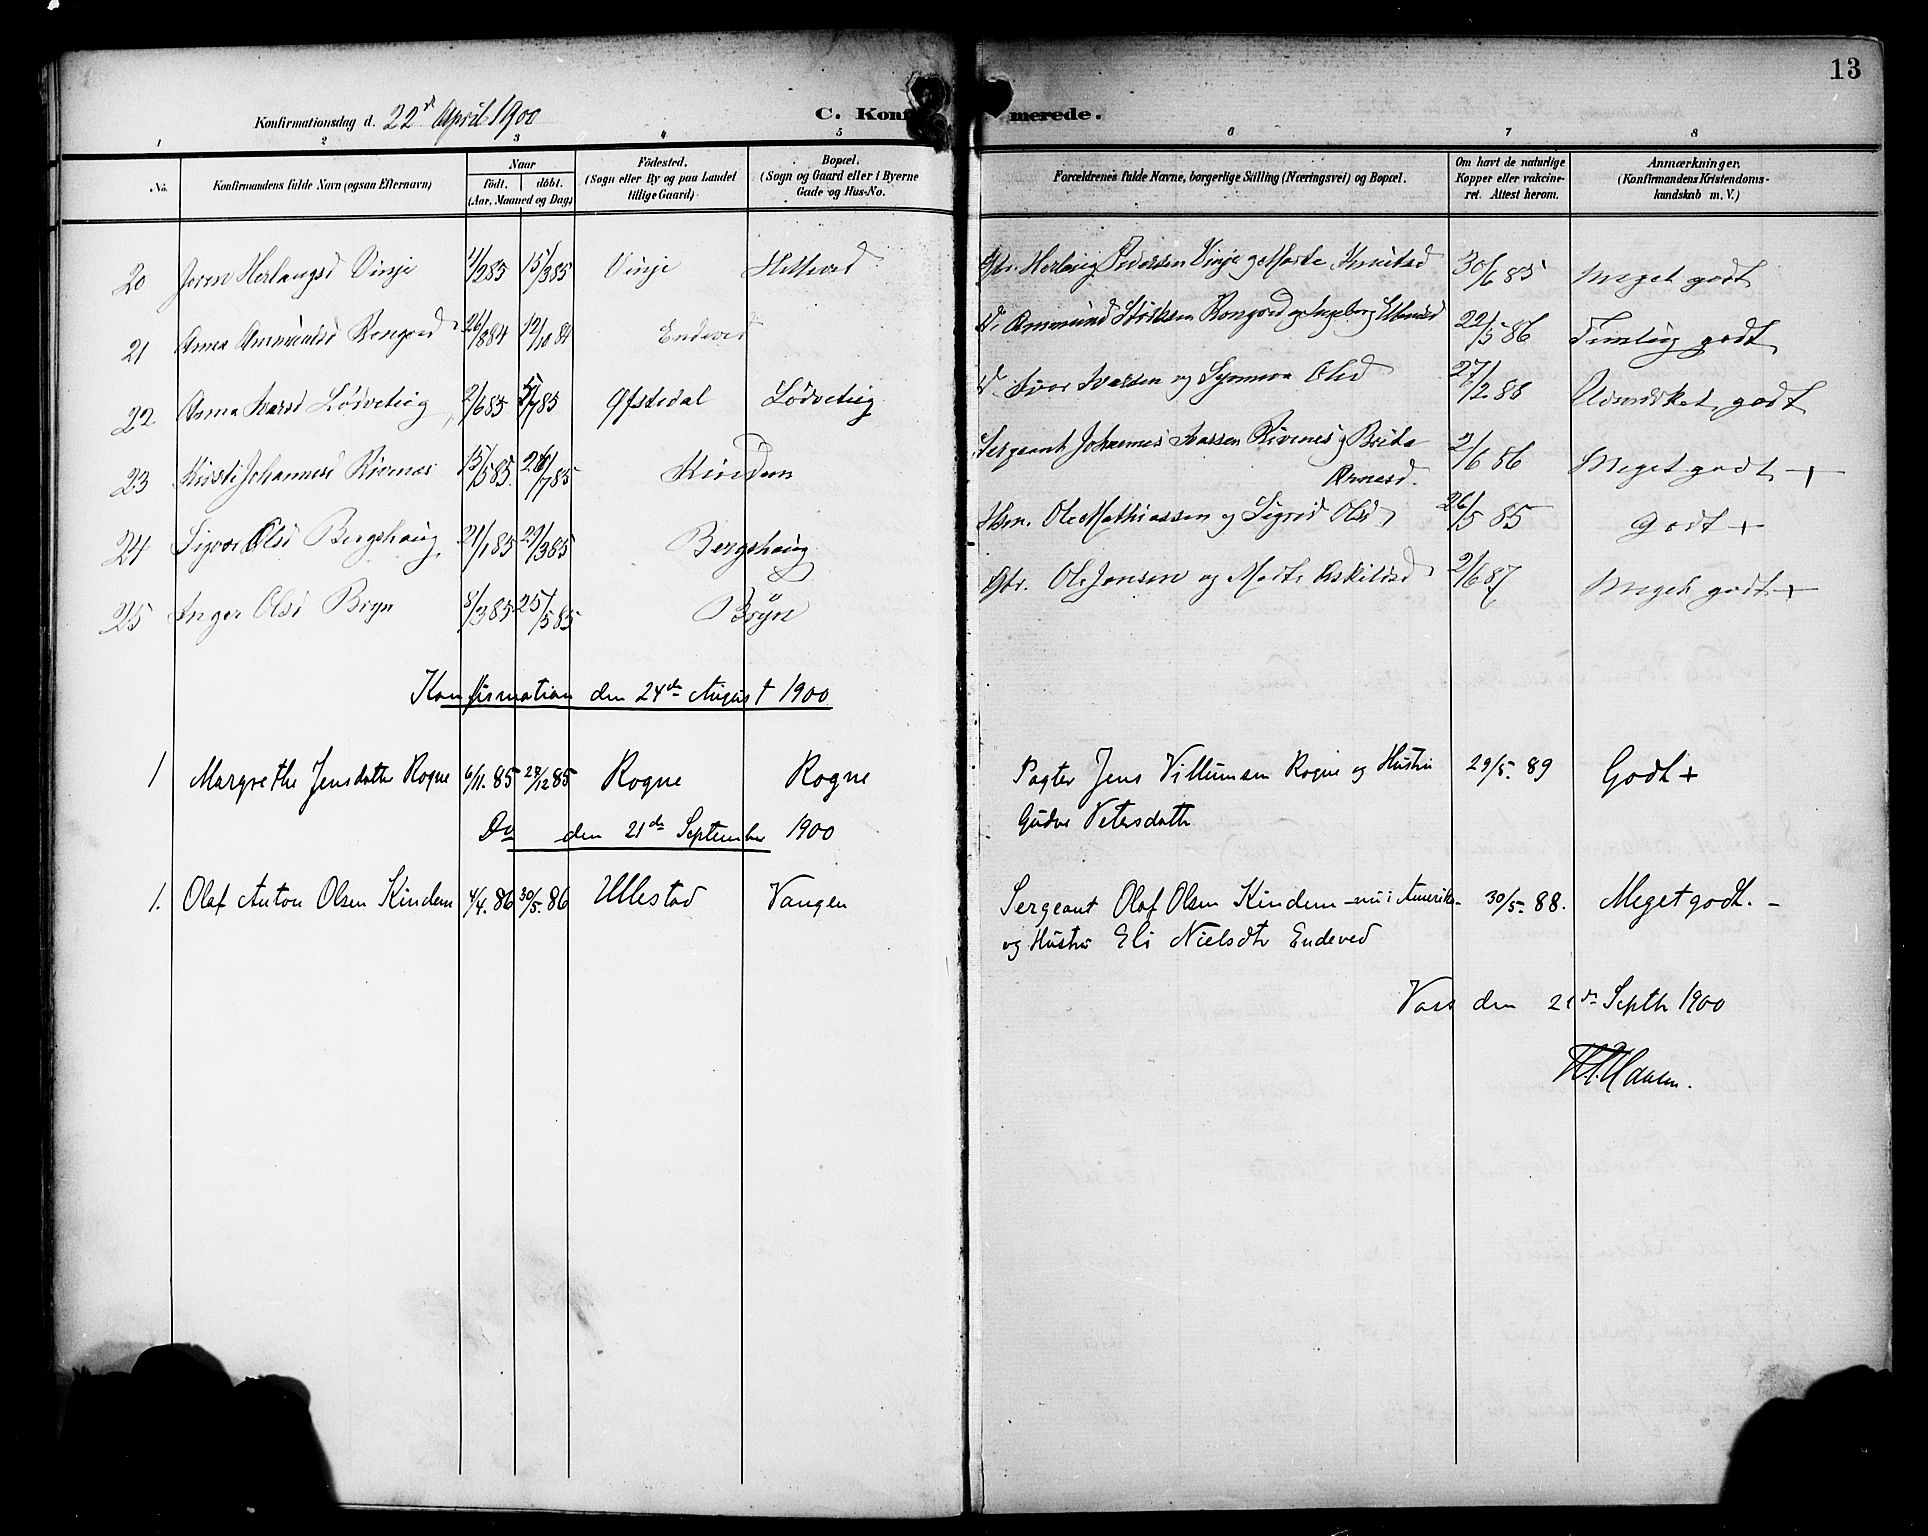 13
Konfirmationsdag d. 22d April 1900
C. Konf merede.
1 2 3 4 5 6 7 8
No.
Konfirmandens fulde Navn (ogsaa Efternavn)
Naar
födt. döbt.
(Aar, Maaned og Dag)
Födested.
(Sogn eller By og paa Landet
tillige Gaard)
Bopæl.
(Sogn og Gaard eller i Byerne
Gade og Hus-No.
Forældrenes fulde Navne, borgerlige Stilling (Næringsvei) og Bopæl.
Om havt de naturlige
Kopper eller vakcine-
ret. Attest herom.
Anmærkninger.
(Konfirmandens Kristendoms-
kundskab m. V.)
20 Joren Herlaugsd Vinje 4/2 85 15/3 85 Vinje Helleved Gbr. Herlaug Pedersen Vinje og Marte Knutsd 30/6 85 Meget godt
21 Anna Ammundsd Rongved 26/8 84 12/10 84 Endeved Ammund Rongved og Ingeborg 22/5 86 Temlig godt
22 Anna Ivarsd Lødveteig 2/6 85 5/7 85 Øfstedal Lødveteig Ivar Ivarsen og Synneva Olsd 27/2 86 Udmærket godt
23 Kirsti Johannesd Rivenæs 13/5 85 26/7 85 Kindem Sergeant Johannes Ivarsen Rivenes og Brita
Arnesd. 2/6 86 Meget godt +
24 Sigvor Olsd Bergshaug 21/1 85 29/3 85 Bergshaug Hsm. Ole Mathiassen og Sigrid Olsd 26/5 85 Godt +
25 Inger Olsd Bryn 8/3 85 25/5 85 Bryn Gbr. Ole Jensen og Marte Askildsd 2/6 87 Meget godt +
Konfirmation den 24de August 1900
1 Margrethe Jensdatter Rogne 6/11. 85 28/12 85 Rogne Rogne Pagter Jens Villumsen Rogne og Hustru 29/5. 89 Godt +
Gudve Petersdatter
Do den 21de September 1900
1. Olaf Anton Olsen Kindem 4/4. 86 30/5. 86 Ullestad Vangen Sergeant Olaf Olsen Kindem – nu i Amerika – 30/5. 88. Meget godt. –
og Hustru Eli Nielsdtr Endeved
Voss den 21de Septbr 1900